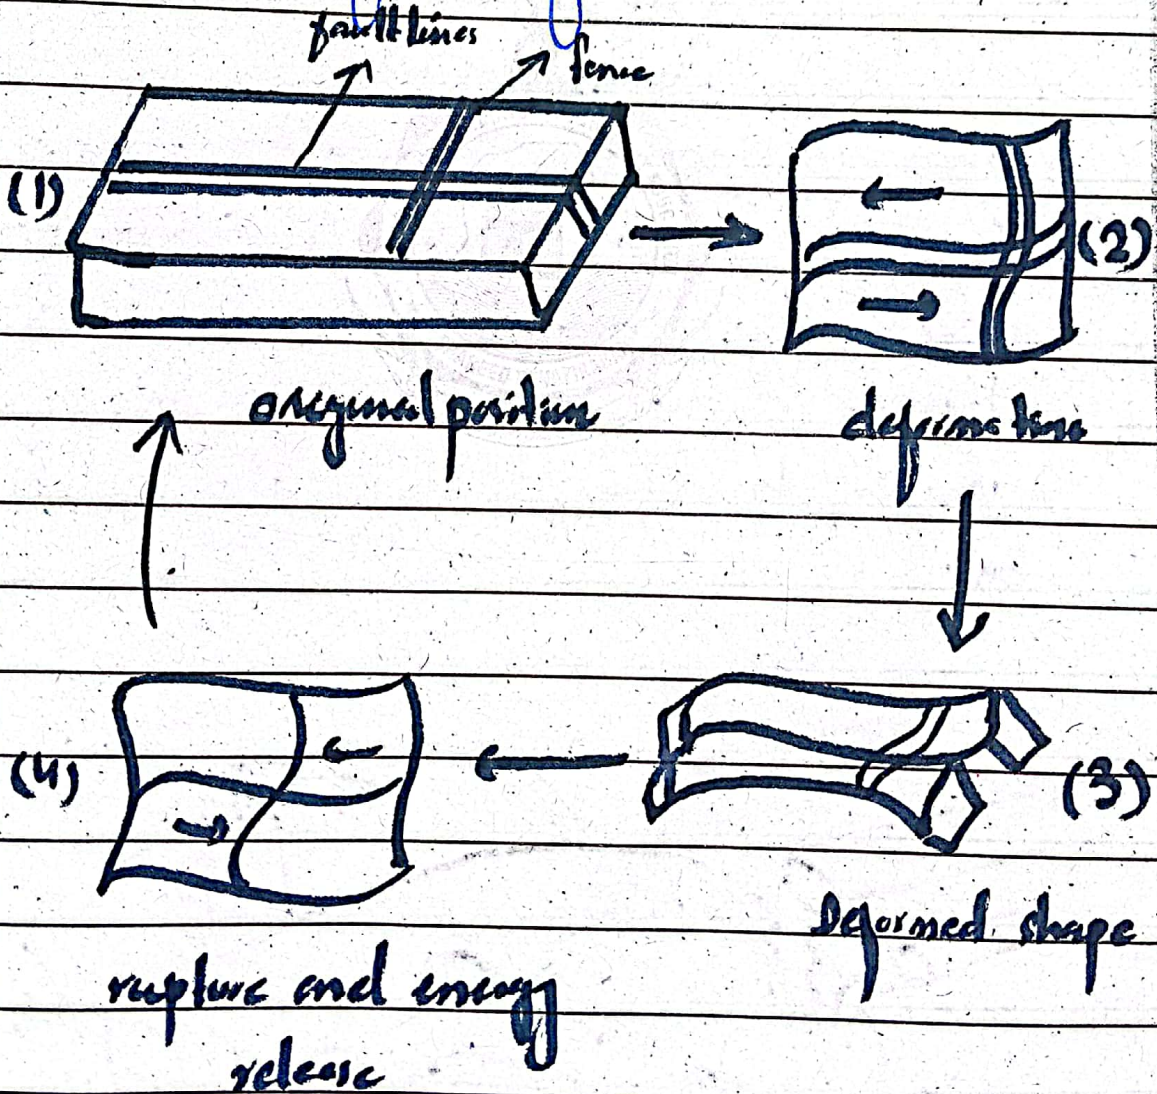 fault lines
fence
(1)
(2)
original position
deformation
(4)
(3)
Deformed shape
rupture and energy
release